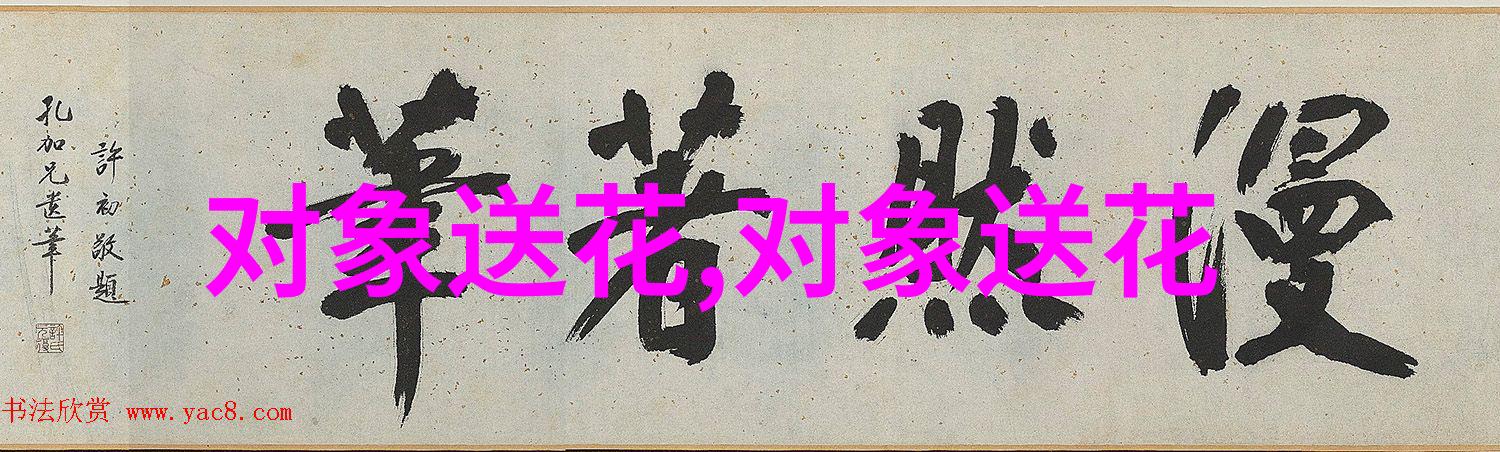 漫然著筆
許初敬題
孔加兄遺筆
对象送花,对象送花
书法欣赏 www.yac8.com